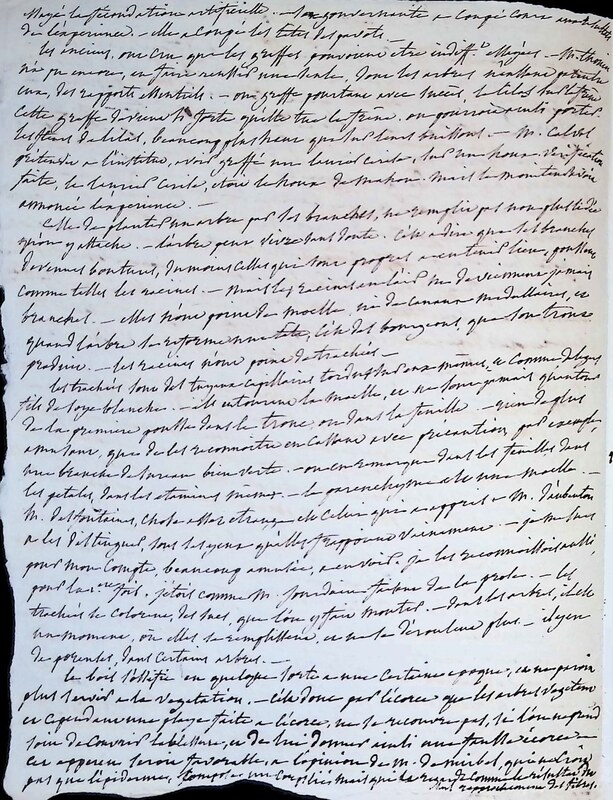 la fécondation artificielle. — Sa gouvernante a coupé
de l'expérience. — elle a coupé les têtes des pavots. —
les anciens, ont cru, que les greffes pouvoient être indiff.t M. Thouin
n'a pu encore, en faire réussir une seule, dont les arbres n'eussent
eux, des rapports essentiels. — on greffe pourtant avec succès, le lilas sur le frêne
cette greffe devient si forte qu'elle tue le frêne. on pourroit aussi
les fleurs de lilas, beaucoup plus haut que sur leurs buissons — M. Calvel
prétendit a l'institut, avoir greffé un laurier cerise, sur un houx. Vérification
faite, le laurier cerise, étoit le houx de mahon. mais le moniteur
annoncé l'expérience. —
Celle de planter un arbre par les branches, ne remplit pas non plus l'idée
qu'on y attache. — l'arbre peut vivre sans doute. C'est a dire que les branches
devenues boutures, du moins celles qui sont propres a en tenir lieu, poussent
comme telles les racines. — mais les racines en l'air ne deviennent jamais
branches. — elles n'ont point de moelle, ni de canaux médullaires, et
quand l'arbre se reforme une tête, c'est des bourgeons, que son tronc
produit. — les racines n'ont point de trachées —
les trachées sont des tuyaux capillaires tordus sur eux mêmes, et comme de longs
fils de soye blanche. — elles entourent la moelle, et ne sont jamais qu'autour
de la première pousse dans le tronc, ou dans la feuille. — rien de plus
amusant, que de les reconnoitre en cassant avec précaution, par exemple
une branche de sureau bien verte. — on en remarque dans les feuilles dans
les pétales, dans les étamines mêmes. — le parenchyme est une moelle. —
M. desfontaines, chose assez étrange est celui qui a appris a M. d'aubenton
a les distinguer, sous les yeux qu'elles frappoient vainement. — je me suis
pour mon compte, beaucoup amusée, a en voir. je les reconnoissois aussi,
pour la 1ere fois. j'étois comme M. jourdain faisant de la prose. — les
trachées se colorent, des sucs, que l'on y fait monter. — dans les arbres, il est
un moment, où elles se remplissent, et ne se déroulent plus. — il y en
de parentes, dans certains arbres. —
le bois s'ossifie en quelque sorte a une certaine époque, et ne paroit
plus servir a la végétation. — C'est donc par l'écorce que les arbres végètent
et cependant une playe faite a l'écorce, ne se recouvre pas, si l'on ne prend
soin de couvrir la blessure, et de lui donner ainsi une fausse écorce —
cet apperçu seroit favorable, a l'opinion de M. de mirbel, qui ne croit
pas que l'épiderme, soit mais qui la regarde comme le résultat du
rapprochement des fibres.